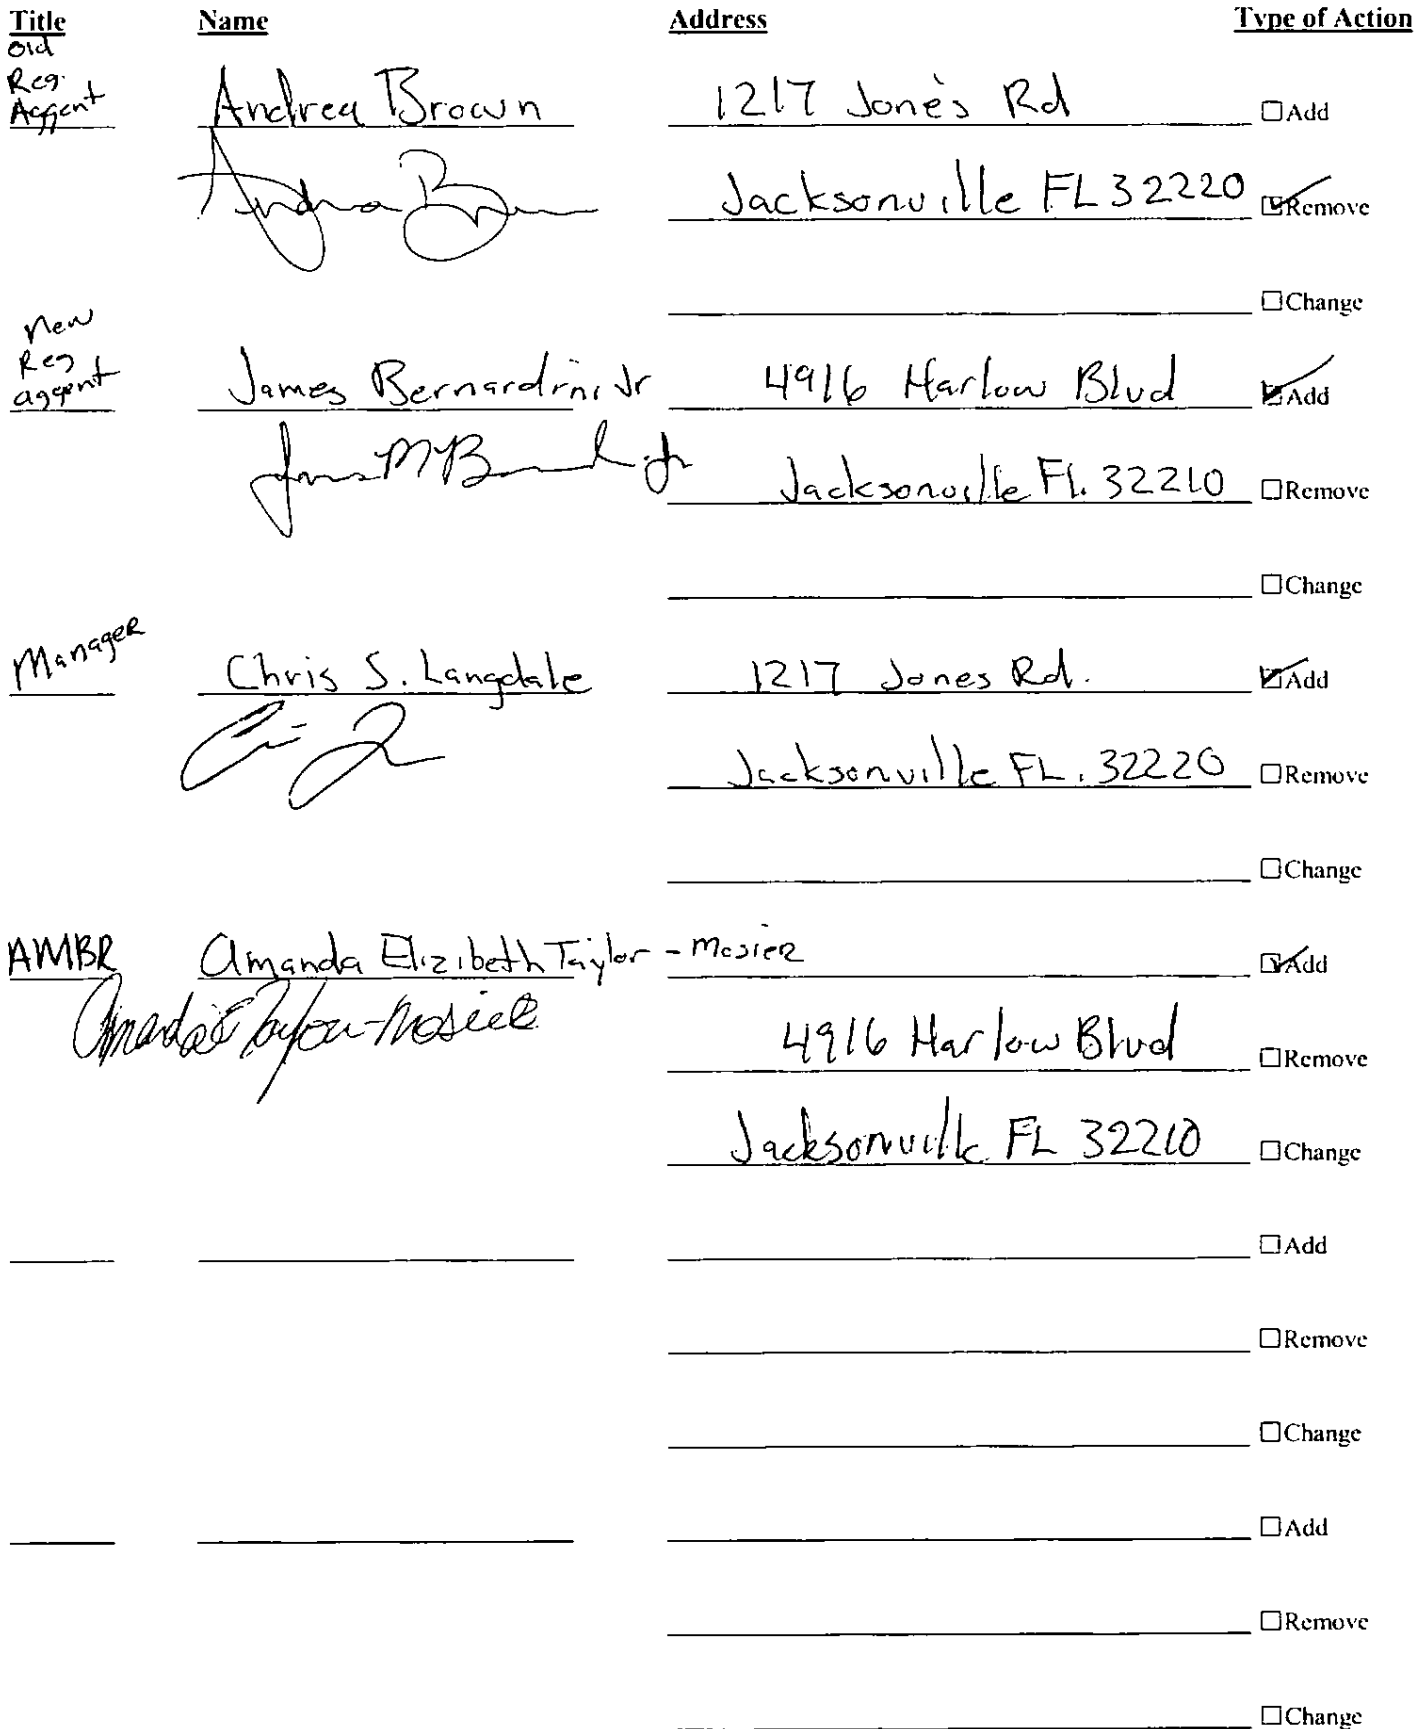 Title Name Address Type of Action
Old
Reg.
Aggent Andrea Brown 1217 Jones Rd ☐Add
Andrea Brown Jacksonville FL 32220 ☑Remove
☐Change
New
Reg
aggent James Bernardini Jr 4916 Harlow Blvd ☑Add
Jacksonville Fl. 32210 ☐Remove
☐Change
Manager Chris S. Langdale 1217 Jones Rd. ☑Add
Jacksonville FL. 32220 ☐Remove
☐Change
AMBR Amanda Elizibeth Taylor - Mosier ☑Add
Amanda E Taylor-Mosier 4916 Harlow Blvd ☐Remove
Jacksonville FL 32210 ☐Change
☐Add
☐Remove
☐Change
☐Add
☐Remove
☐Change